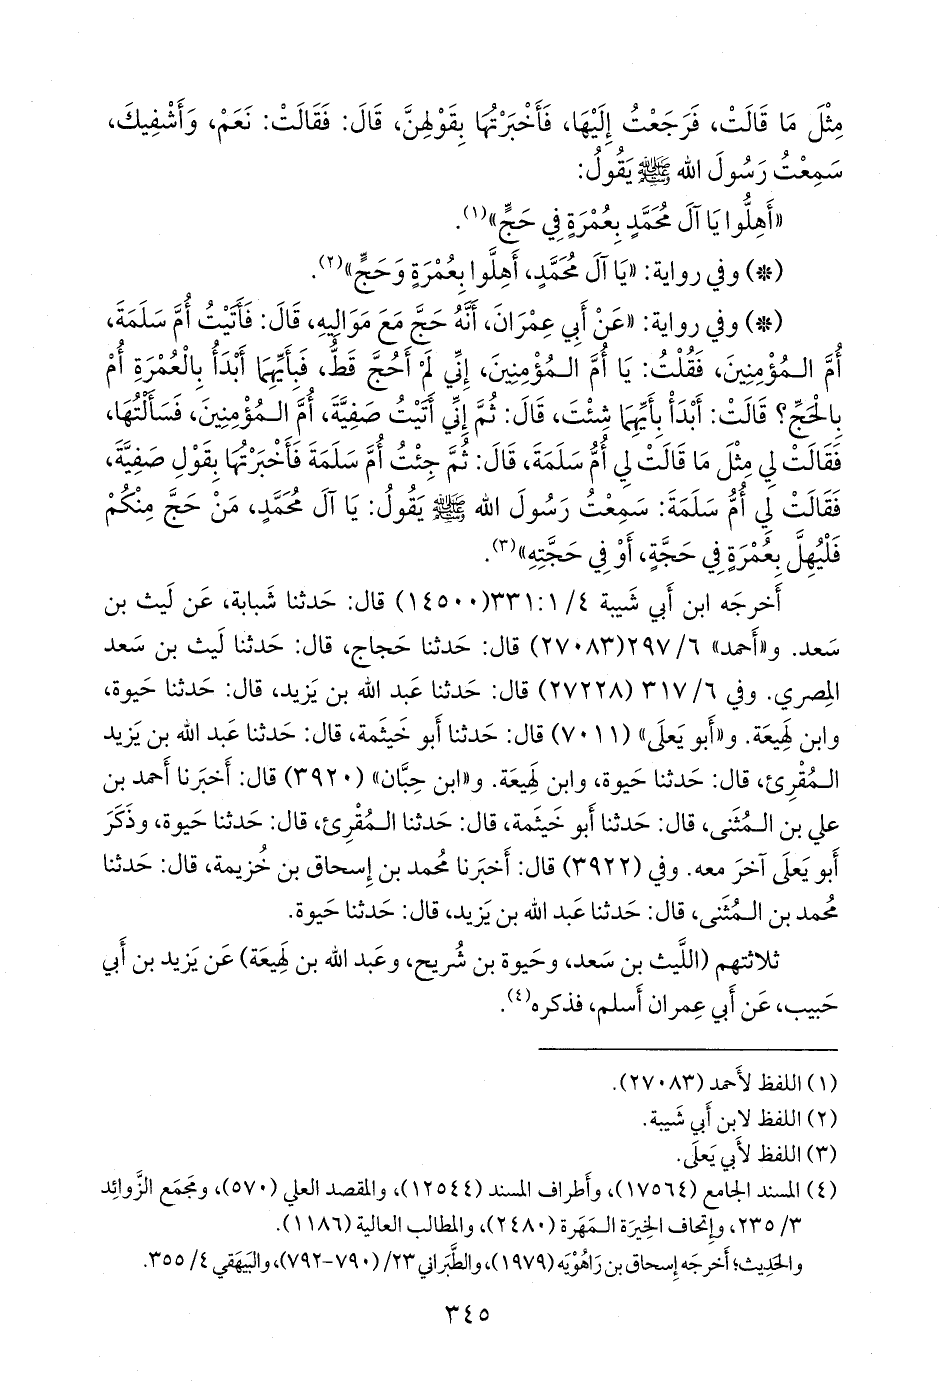 مِثْلَ مَا قَالَتْ، فَرَجَعْتُ إِلَيْهَا، فَأَخْبَرْتُهَا بِقَوْلِهِنَّ، قَالَ: فَقَالَتْ: نَعَمْ، وَأَشْفِيكَ،
سَمِعْتُ رَسُولَ الله ﷺ يَقُولُ:
«أَهِلُّوا يَا آلَ مُحَمَّدٍ بِعُمْرَةٍ فِي حَجٍّ»(١).
(*) وفي رواية: «يَا آلَ مُحَمَّدٍ، أَهِلُّوا بِعُمْرَةٍ وَحَجٍّ»(٢).
(*) وفي رواية: «عَنْ أَبِي عِمْرَانَ، أَنَّهُ حَجَّ مَعَ مَوَالِيهِ، قَالَ: فَأَتَيْتُ أُمَّ سَلَمَةَ،
أُمَّ الـمُؤْمِنِينَ، فَقُلْتُ: يَا أُمَّ الـمُؤْمِنِينَ، إِنِّي لَمْ أَحُجَّ قَطُّ، فَبِأَيِّهِمَا أَبْدَأُ بِالْعُمْرَةِ أَمْ
بِالْحَجِّ؟ قَالَتْ: أَبْدَأُ بِأَيِّهِمَا شِئْتَ، قَالَ: ثُمَّ إِنِّي أَتَيْتُ صَفِيَّةَ، أُمَّ الـمُؤْمِنِينَ، فَسَأَلْتُهَا،
فَقَالَتْ لِي مِثْلَ مَا قَالَتْ لِي أُمُّ سَلَمَةَ، قَالَ: ثُمَّ جِئْتُ أُمَّ سَلَمَةَ فَأَخْبَرْتُهَا بِقَوْلِ صَفِيَّةَ،
فَقَالَتْ لِي أُمُّ سَلَمَةَ: سَمِعْتُ رَسُولَ الله ﷺ يَقُولُ: يَا آلَ مُحَمَّدٍ، مَنْ حَجَّ مِنْكُمْ
فَلْيُهِلَّ بِعُمْرَةٍ فِي حَجَّةٍ، أَوْ فِي حَجَّتِهِ»(٣).
أخرجَه ابن أبي شَيبة ٤/ ٣٣١:١(١٤٥٠٠) قال: حَدثنا شَبابة، عَن لَيث بن
سَعد. و«أَحمد» ٦/ ٢٩٧(٢٧٠٨٣) قال: حَدثنا حَجاج، قال: حَدثنا لَيث بن سَعد
المِصري. وفي ٦/ ٣١٧ (٢٧٢٢٨) قال: حَدثنا عَبد الله بن يَزيد، قال: حَدثنا حَيوة،
وابن لَهِيعَة. و«أَبو يَعلَى» (٧٠١١) قال: حَدثنا أَبو خَيثَمة، قال: حَدثنا عَبد الله بن يَزيد
الـمُقْرِئ، قال: حَدثنا حَيوة، وابن لَهِيعَة. و«ابن حِبَّان» (٣٩٢٠) قال: أَخبَرنا أَحمد بن
علي بن الـمُثَنى، قال: حَدثنا أَبو خَيثَمة، قال: حَدثنا الـمُقْرِئ، قال: حَدثنا حَيوة، وذَكَرَ
أَبو يَعلَى آخرَ معه. وفي (٣٩٢٢) قال: أَخبَرنا مُحمد بن إِسحاق بن خُزيمة، قال: حَدثنا
مُحمد بن الـمُثَنى، قال: حَدثنا عَبد الله بن يَزيد، قال: حَدثنا حَيوة.
ثلاثتهم (اللَّيث بن سَعد، وحَيوة بن شُريح، وعَبد الله بن لَهِيعَة) عَن يَزيد بن أَبي
حَبيب، عَن أَبي عِمران أَسلم، فذكره(٤).
(١) اللفظ لأَحمد (٢٧٠٨٣).
(٢) اللفظ لابن أَبي شَيبة.
(٣) اللفظ لأَبي يَعلَى.
(٤) المسند الجامع (١٧٥٦٤)، وأَطراف المسند (١٢٥٤٤)، والمقصد العلي (٥٧٠)، ومَجمَع الزَّوائِد
٣/ ٢٣٥، وإِتحاف الخِيَرَة الـمَهَرة (٢٤٨٠)، والمطالب العالية (١١٨٦).
والحَدِيث؛ أَخرجَه إِسحاق بن رَاهُوْيَه (١٩٧٩)، والطَّبَراني ٢٣/ (٧٩٠-٧٩٢)، والبَيهَقي ٤/ ٣٥٥.
٣٤٥